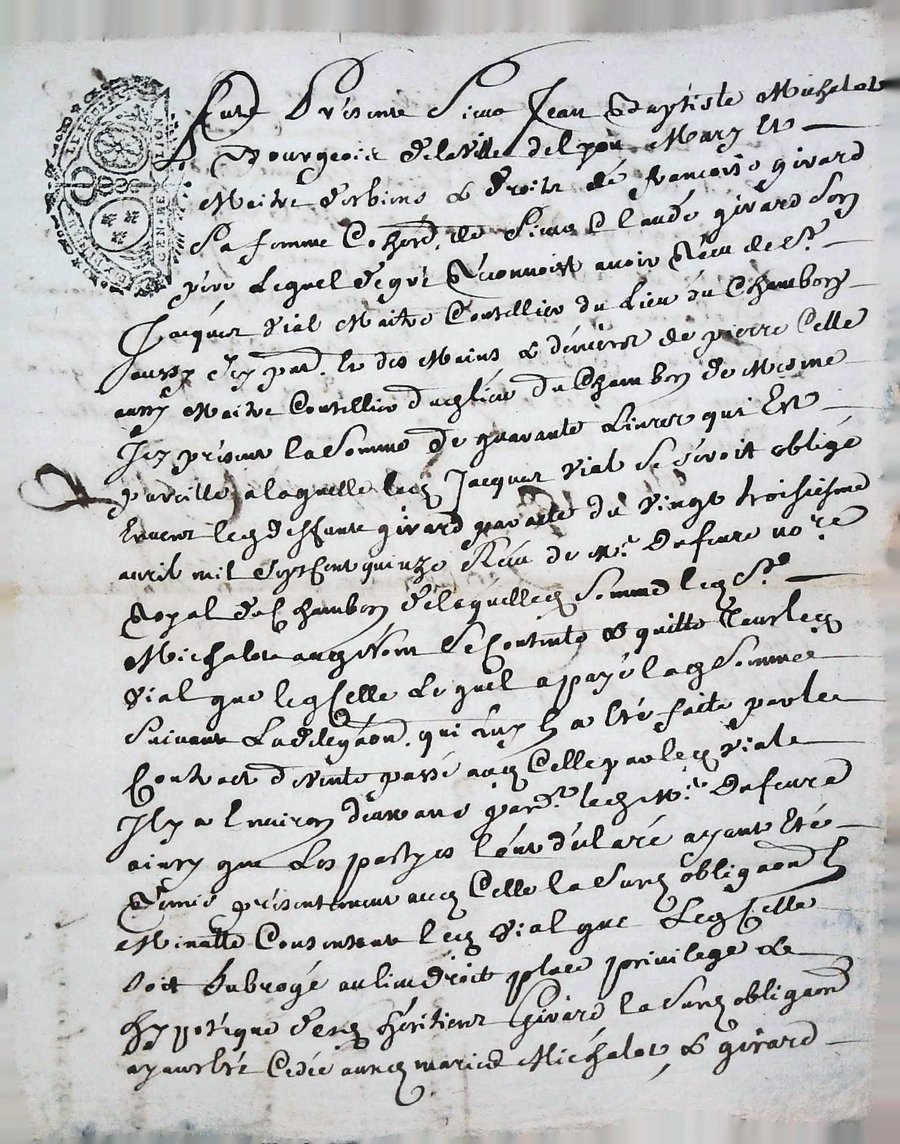 GENER LION
fut Présent Sieur Jean Baptiste Michalot
Bourgeois de la Ville de Lyon Mary Et
Maitre des biens & droits de françoise girard
Sa femme Coherd. de Sieur Claude girard Son
père Lequel de gré Reconnoist avoir Receu de Sr.
Jacques Vial Maitre Coutellier du Lieu du Chambon
aussy Icy par les Mains & deniers de pierre Celle
aussy Maitre Coutellier dud lieu du Chambon de Mesme
Icy présent la Somme de quarante Livres qui Est
pareille a laquelle led Jacques Vial Se Seroit obligé
Envers led deffunt girard par acte du Vingt troisiesme
avril mil Sept Cent quinze Receu de Me. Dafeure nore
Royal du Chambon de laquelle Somme led Sr.
Michalot aud Nom Se Contente & quitte led
Vial que led Celle Lequel a payé lad Somme
Suivant La delegaon. qui luy En a Eté faite par le
Contract de Vente passé aud Celle par led Vial
Il y a Environ deux ans pard. led Me. Dafeure
ainsy que Les partyes l'ont déclaré ayant Eté
Remis présentement aud Celle la Susd obligaon En
Minutte Consentant led Vial que Led Celle
Soit Subrogé au lieu droit place privilege &
hypoteque desd héritiers Girard la Susd obligaon
ayant Eté Cedée auxd mariés Michalot & girard